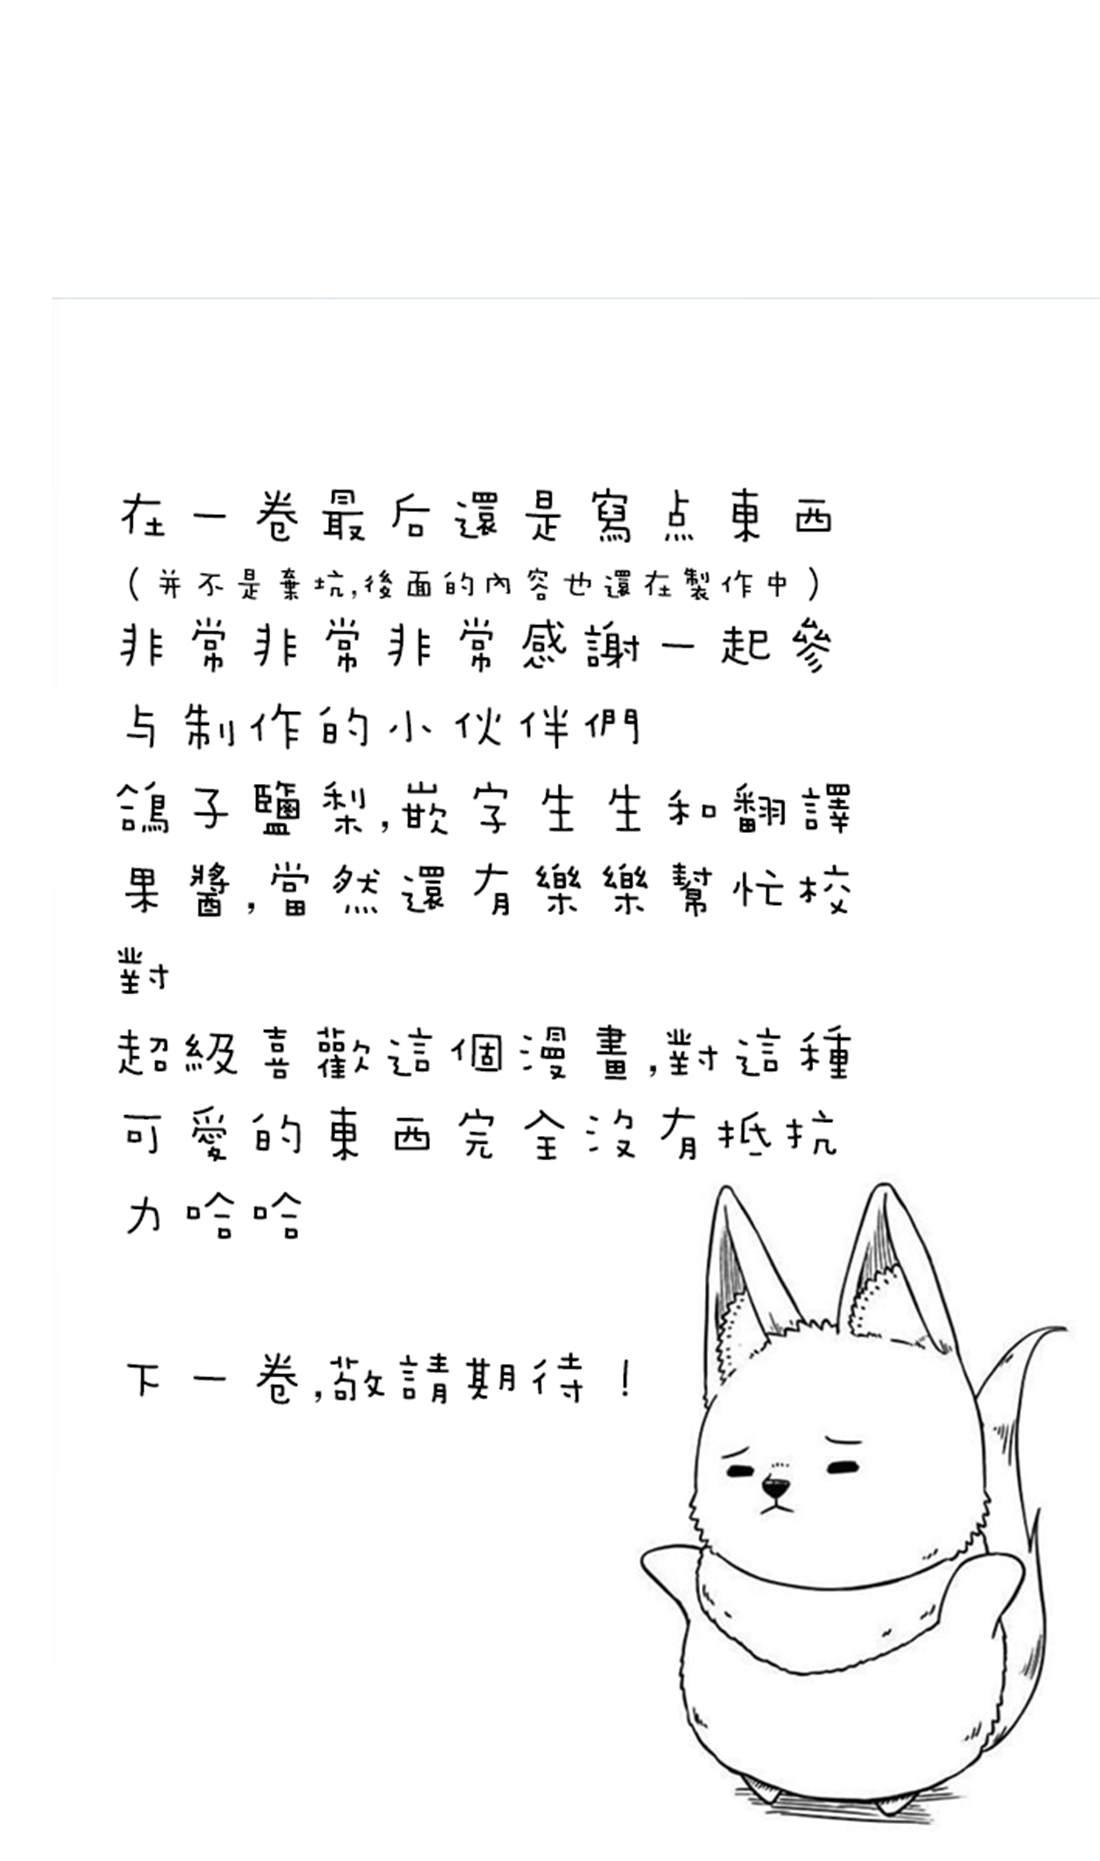 在一卷最后還是寫点東西
(并不是棄坑,後面的內容也還在製作中)
非常非常非常感謝一起參
与制作的小伙伴們
鴿子鹽梨,嵌字生生和翻譯
果醬,當然還有樂樂幫忙校
對
超級喜歡這個漫畫,對這種
可愛的東西完全沒有抵抗
力哈哈
下一卷,敬請期待!